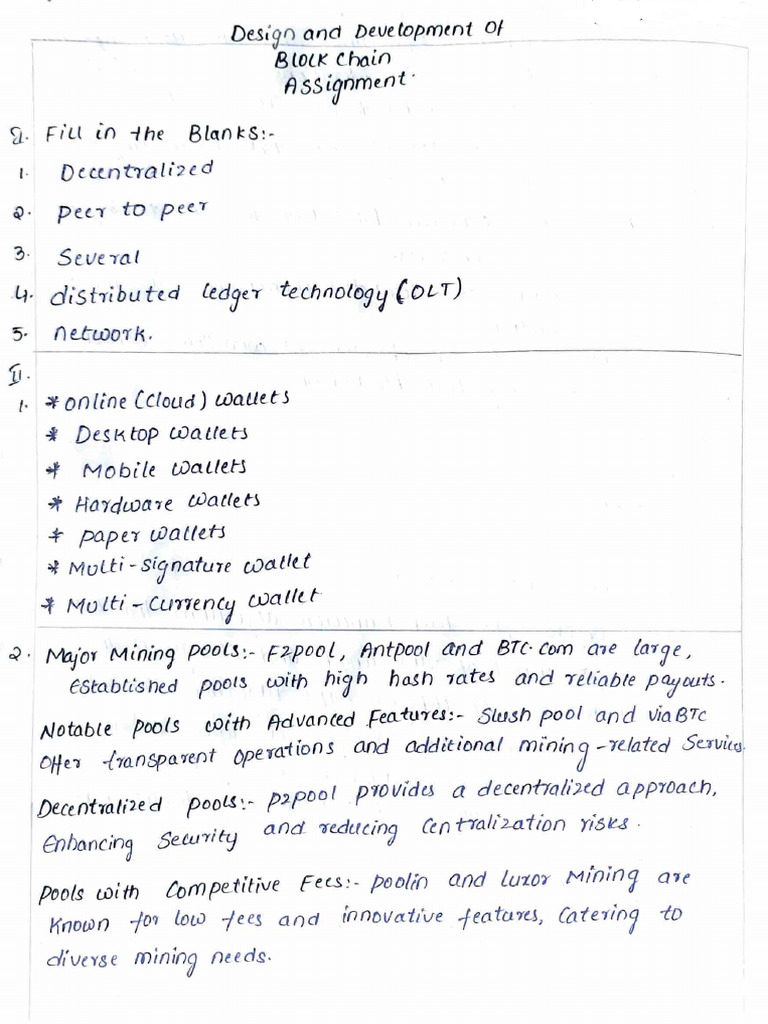 Design and Development Of
Block Chain
Assignment.
I. Fill in the Blanks:-
1. Decentralized
2. Peer to peer
3. Several
4. distributed ledger technology (DLT)
5. network.
II.
1. * online (cloud) wallets
* Desktop wallets
* Mobile wallets
* Hardware wallets
* paper wallets
* Multi-signature wallet
* Multi-currency wallet
2. Major Mining pools:- F2pool, Antpool and BTC.com are large,
Established pools with high hash rates and reliable payouts.
Notable pools with Advanced Features:- Slush pool and viaBTC
Offer transparent operations and additional mining-related Services.
Decentralized pools:- P2pool provides a decentralized approach,
Enhancing Security and reducing Centralization risks.
Pools with Competitive Fees:- poolin and Luxor Mining are
Known for low fees and innovative features, Catering to
diverse mining needs.